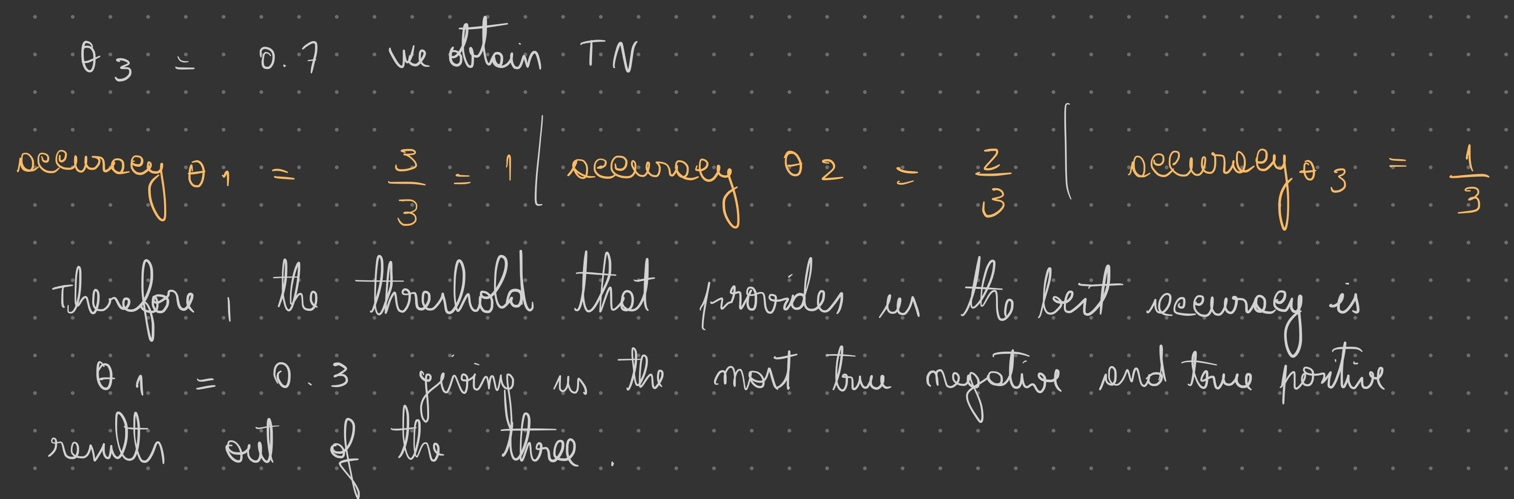 θ3 = 0.7 we obtain TN
accuracy θ1 = 3/3 = 1 | accuracy θ2 = 2/3 | accuracy θ3 = 1/3
Therefore, the threshold that provides us the best accuracy is
θ1 = 0.3 giving us the most true negative and true positive
results out of the three.